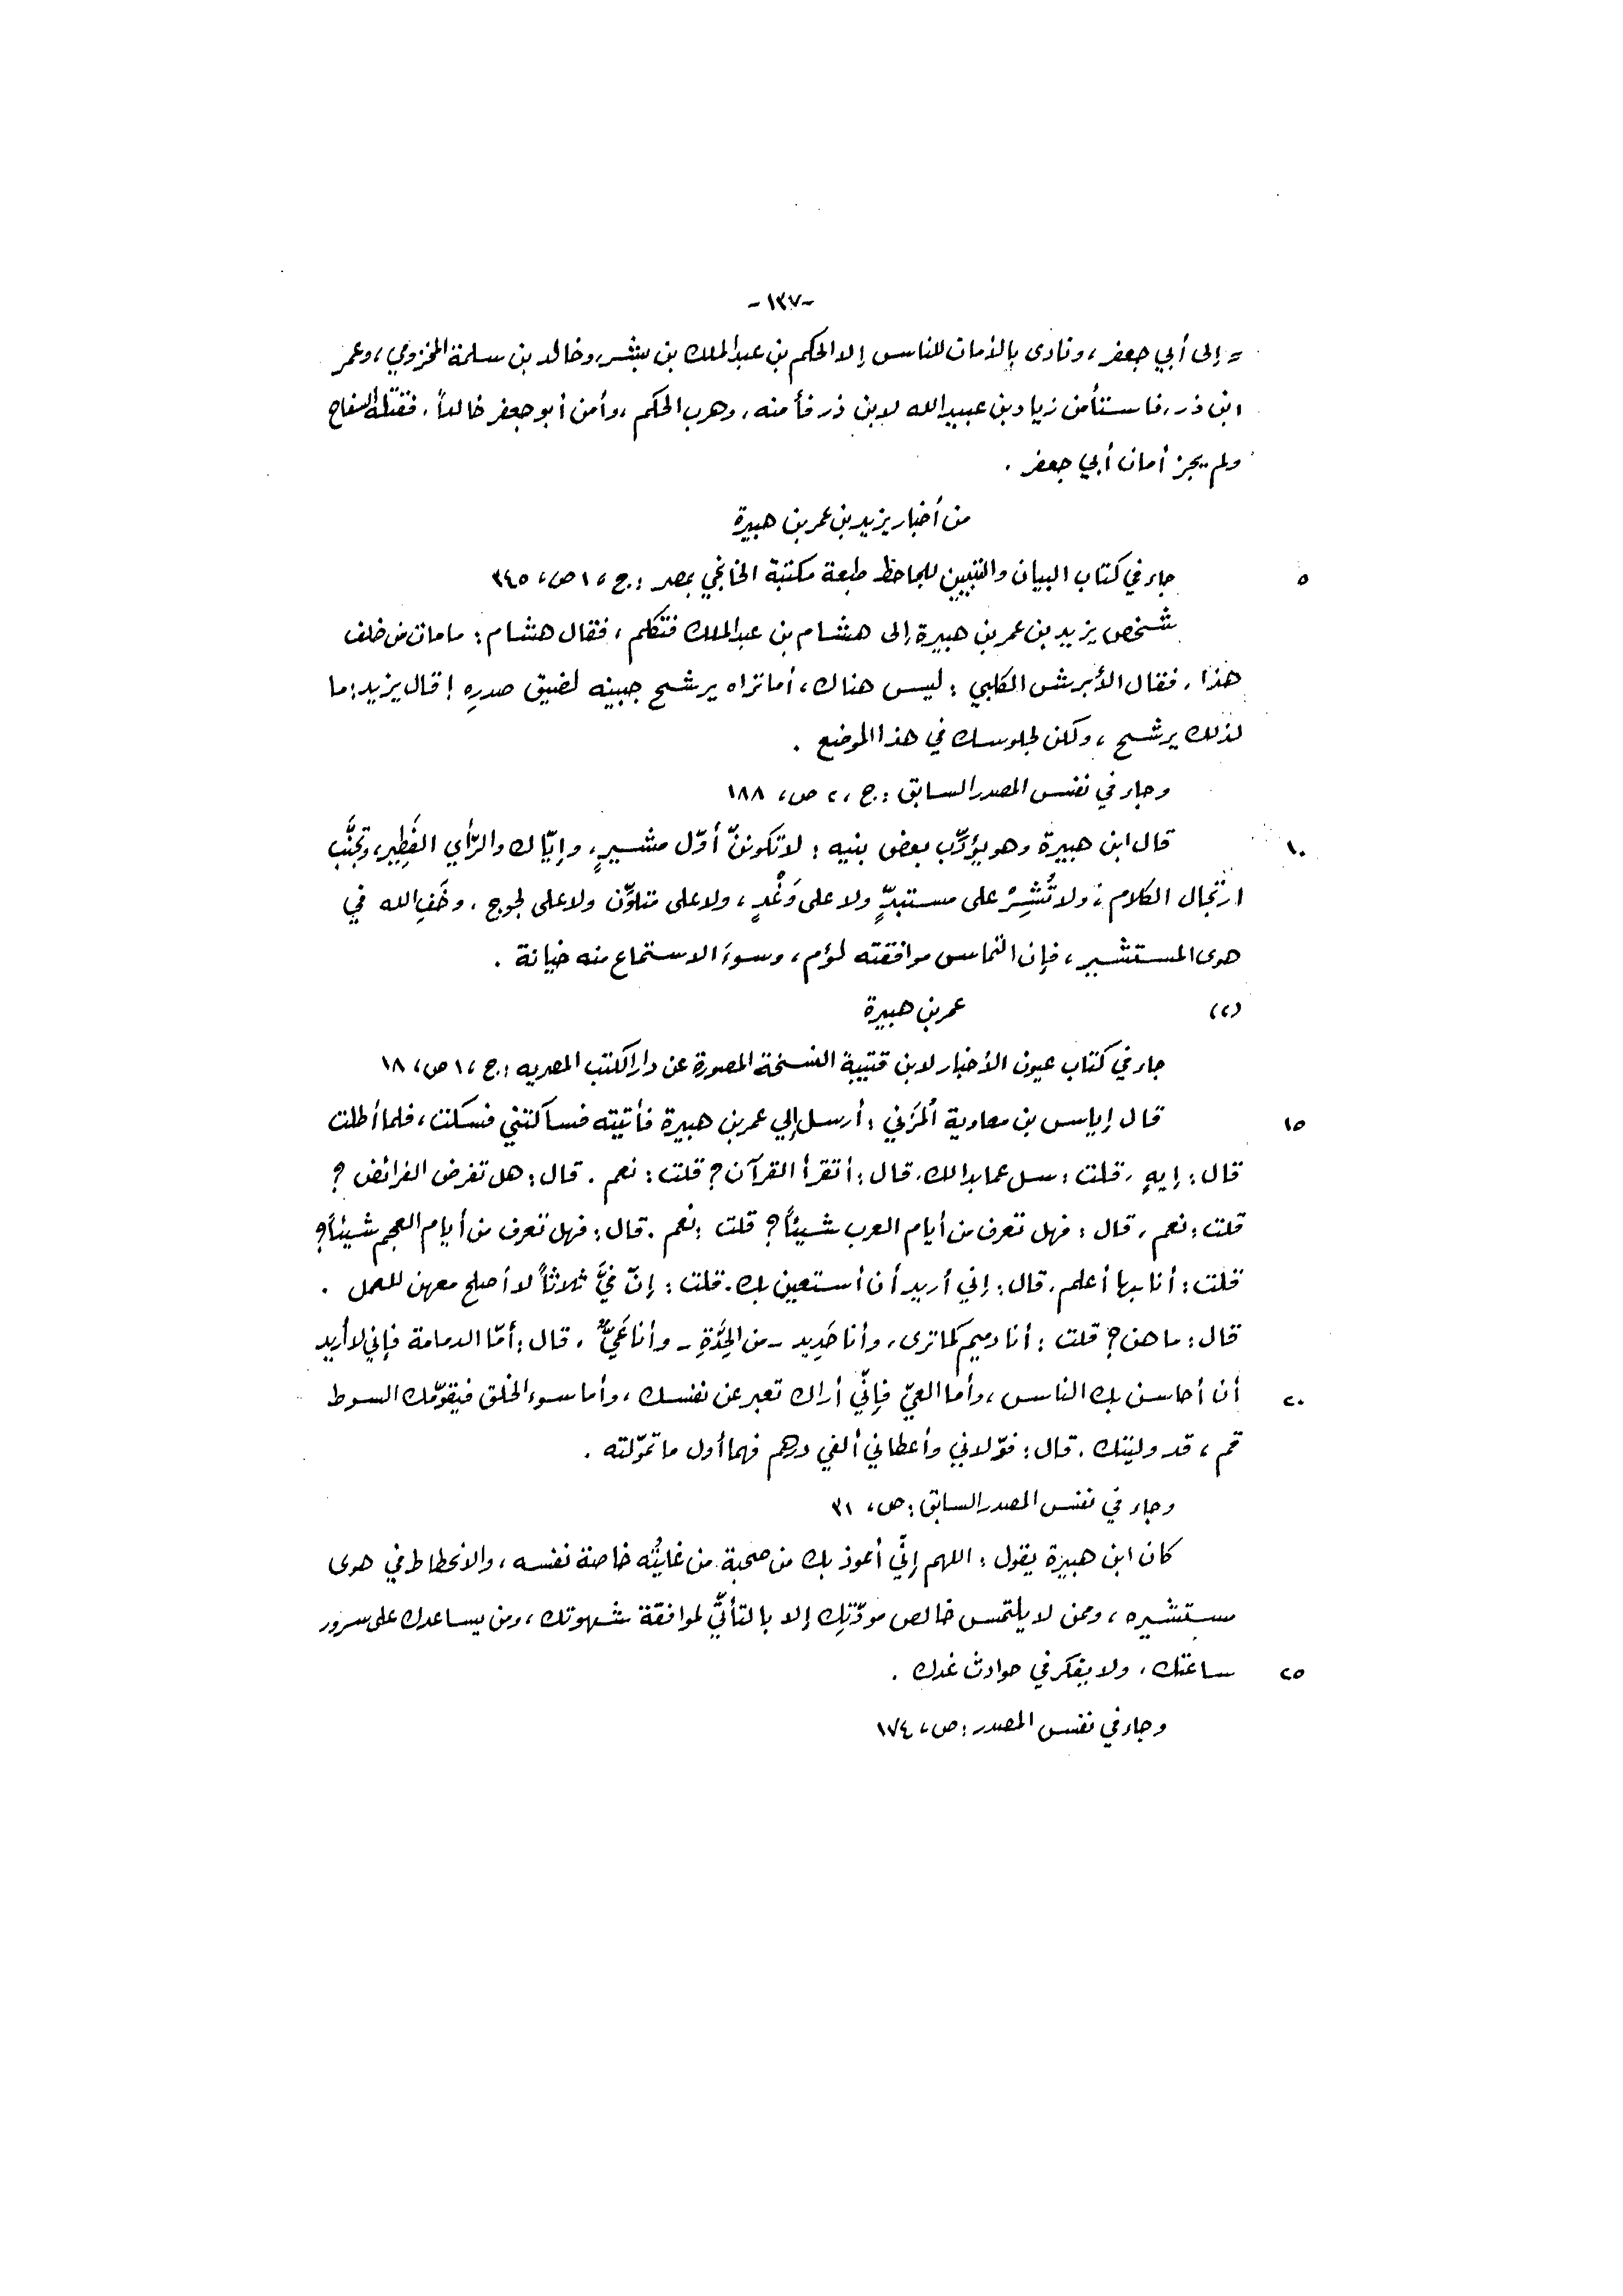 -١٣٧-
= إلى أبي جعفر، ونادى بالأمان للناس إلا الحكم بن عبد الملك بن بشر، وخالد بن سلمة المخزومي، وعمر
ابن ذر، فاستأمن زياد بن عبيد الله لابن ذر فأمنه، وهرب الحكم، وأمن أبو جعفر خالداً، فقتله السفاح
ولم يجز أمان أبي جعفر .
من أخبار يزيد بن عمر بن هبيرة
٥ جاء في كتاب البيان والتبيين للجاحظ طبعة مكتبة الخانجي بمصر : ج ، ١ ص، ٣٤٥
شخص يزيد بن عمر بن هبيرة إلى هشام بن عبد الملك فتكلم ، فقال هشام : ما مات من خلف
هذا . فقال الأبرش الكلبي : ليس هناك، أما تراه يرشح جبينه لضيق صدرِه ! قال يزيد: ما
لذلك يرشح ، ولكن لجلوسك في هذا الموضع .
وجاء في نفس المصدر السابق : ج ،٢ ص، ١٨٨
١٠ قال ابن هبيرة وهو يؤدِّب بعض بنيه : لا تكوننّ أوّل مشيرٍ، وإيّاك والرّأي الفَطِير، وتجنَّب
ارتجال الكلام ، ولا تُشِرْ على مستبدٍّ ولا على وَغْدٍ ، ولا على متلوِّن ولا على لجوج . وخَفِ الله في
هوى المستشير ، فإن التماس موافقته لؤم ، وسوءَ الاستماع منه خيانة .
(٢) عمر بن هبيرة
جاء في كتاب عيون الأخبار لابن قتيبة النسخة المصورة عن دار الكتب المصريه : ج ،١ ص، ١٨
١٥ قال إياس بن معاوية المُزَني : أرسل إلي عمر بن هبيرة فأتيته فساكتني فسكت ، فلما أطلت
قال : إيهٍ ، قلت : سل عما بدا لك . قال : أتقرأ القرآن ؟ قلت : نعم . قال : هل تفرض الفرائض ؟
قلت : نعم ، قال : فهل تعرف من أيام العرب شيئاً ؟ قلت : نعم . قال : فهل تعرف من أيام العجم شيئاً ؟
قلت : أنا بها أعلم . قال : إني أريد أن أستعين بك . قلت : إنّ فيَّ ثلاثاً لا أصلح معهن للعمل .
قال : ما هن ؟ قلت : أنا دميم كما ترى ، وأنا حَدِيد - من الحِدَّةِ - وأنا عَيِيٌّ . قال : أمّا الدمامة فإني لا أريد
٢٠ أن أحاسن بك الناس ، وأما العيّ فإنّي أراك تعبر عن نفسك ، وأما سوء الخلق فيقوّمك السوط
قم ، قد وليتك . قال : فولّاني وأعطاني ألفي درهم فهما أول ما تموّلته .
وجاء في نفس المصدر السابق : ص، ٣١
كان ابن هبيرة يقول : اللهم إنّي أعوذ بك من صحبة من غايتُه خاصة نفسه ، والانحطاط في هوى
مستشيره ، وممن لا يلتمس خالص مودّتِك إلا بالتأتِّي لموافقة شهوتك ، ومن يساعدك على سرور
٢٥ ساعتك ، ولا يفكر في حوادث غدك .
وجاء في نفس المصدر : ص، ١٧٤